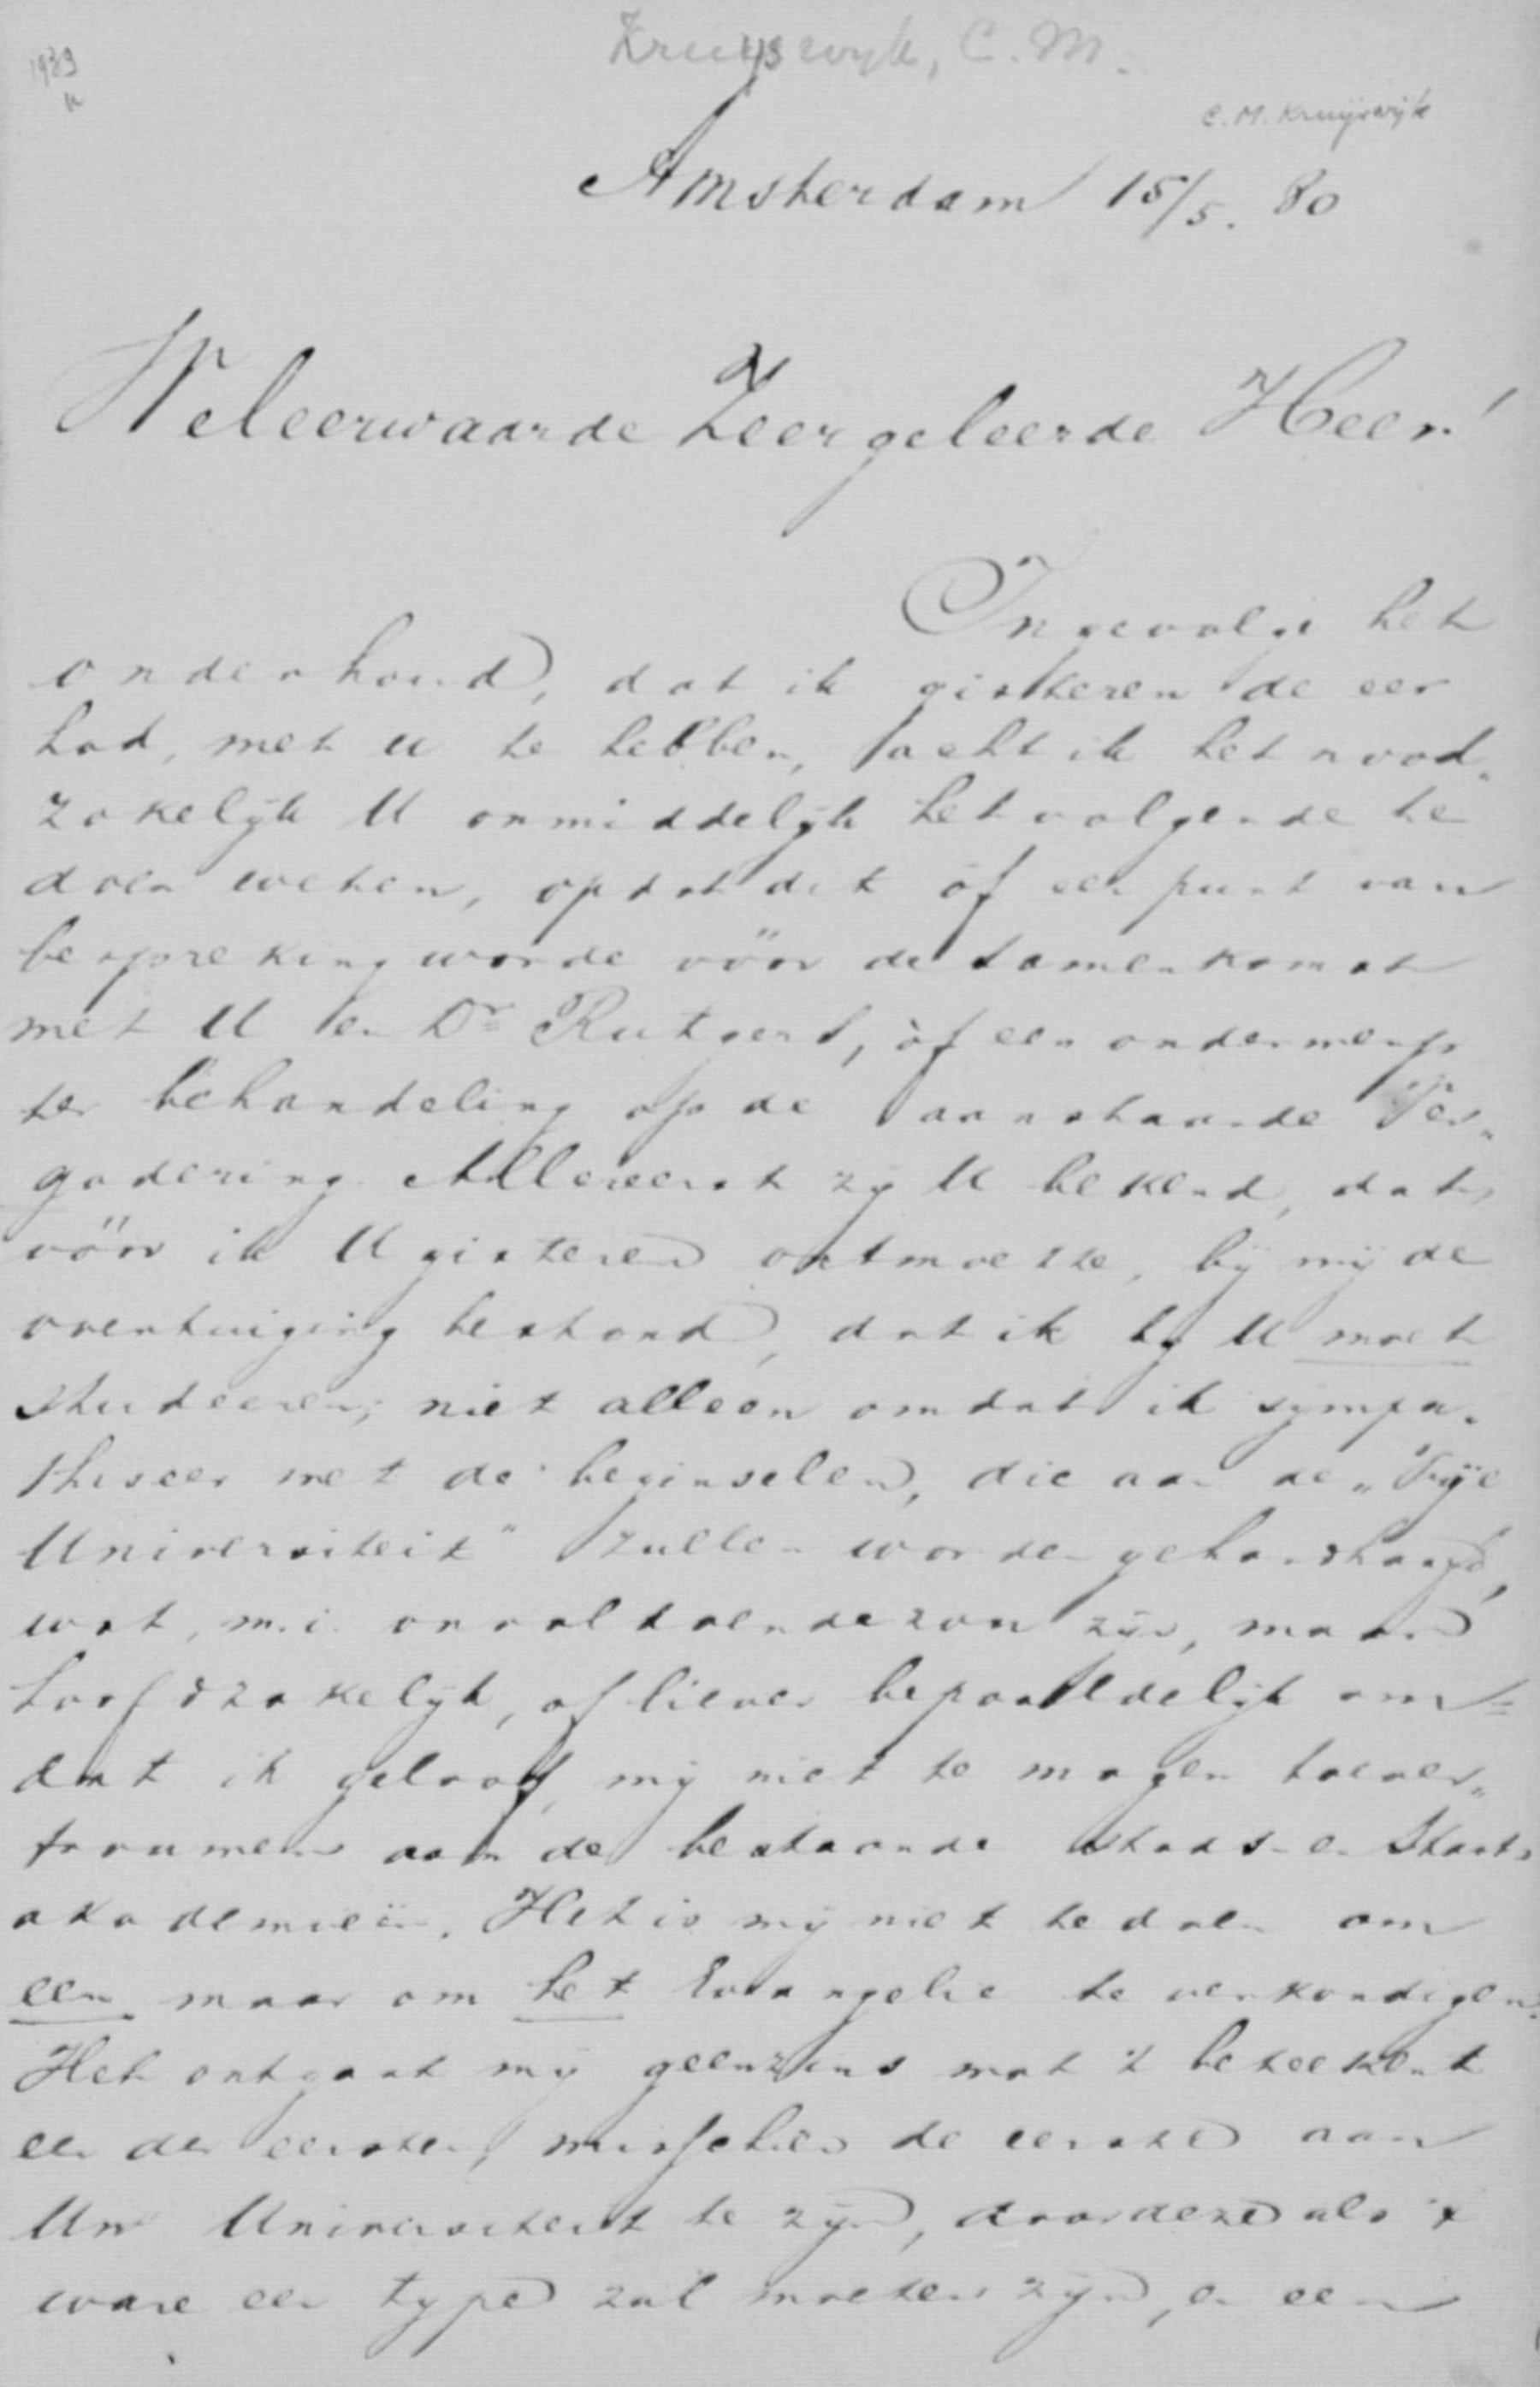 1939
Kruyswyk, C. M.
C. M. Kruijswijk
Amsterdam 15/5. 80
Weleerwaarde Zeergeleerde Heer!
Ingevolge het
onderhoud, dat ik gisteren de eer
had, met U te hebben, acht ik het nood„
zakelijk U onmiddelijk het volgende te
doen weten, opdat dit òf een punt van
bespreking worde vóór de samenkomst
met U en Dr Rutgers, òf een onderwerp
ter behandeling op de aanstaande Ver„
gadering. Allereerst zij U bekend, dat,
vóór ik U gisteren ontmoette, bij mij de
overtuiging bestond, dat ik bij U moet
studeeren; niet alleen omdat ik sympa„
thiseer met de beginselen, die aan de „Vrije
Universiteit" zullen worden gehandhaafd,
wat, m.i. onvoldoende zou zijn, maar
hoofdzakelijk, of liever bepaaldelijk om„
dat ik geloof, mij niet te mogen toever„
trouwen aan de bestaande stads- en Staats
akademieën. Het is mij niet te doen om
een maar om het Evangelie te verkondigen.
Het ontgaat mij geenzins wat 't beteekent
een der eersten, misschien de eerste aan
Uw Universiteit te zijn, daar deze als 't
ware een type zal moeten zijn, en een